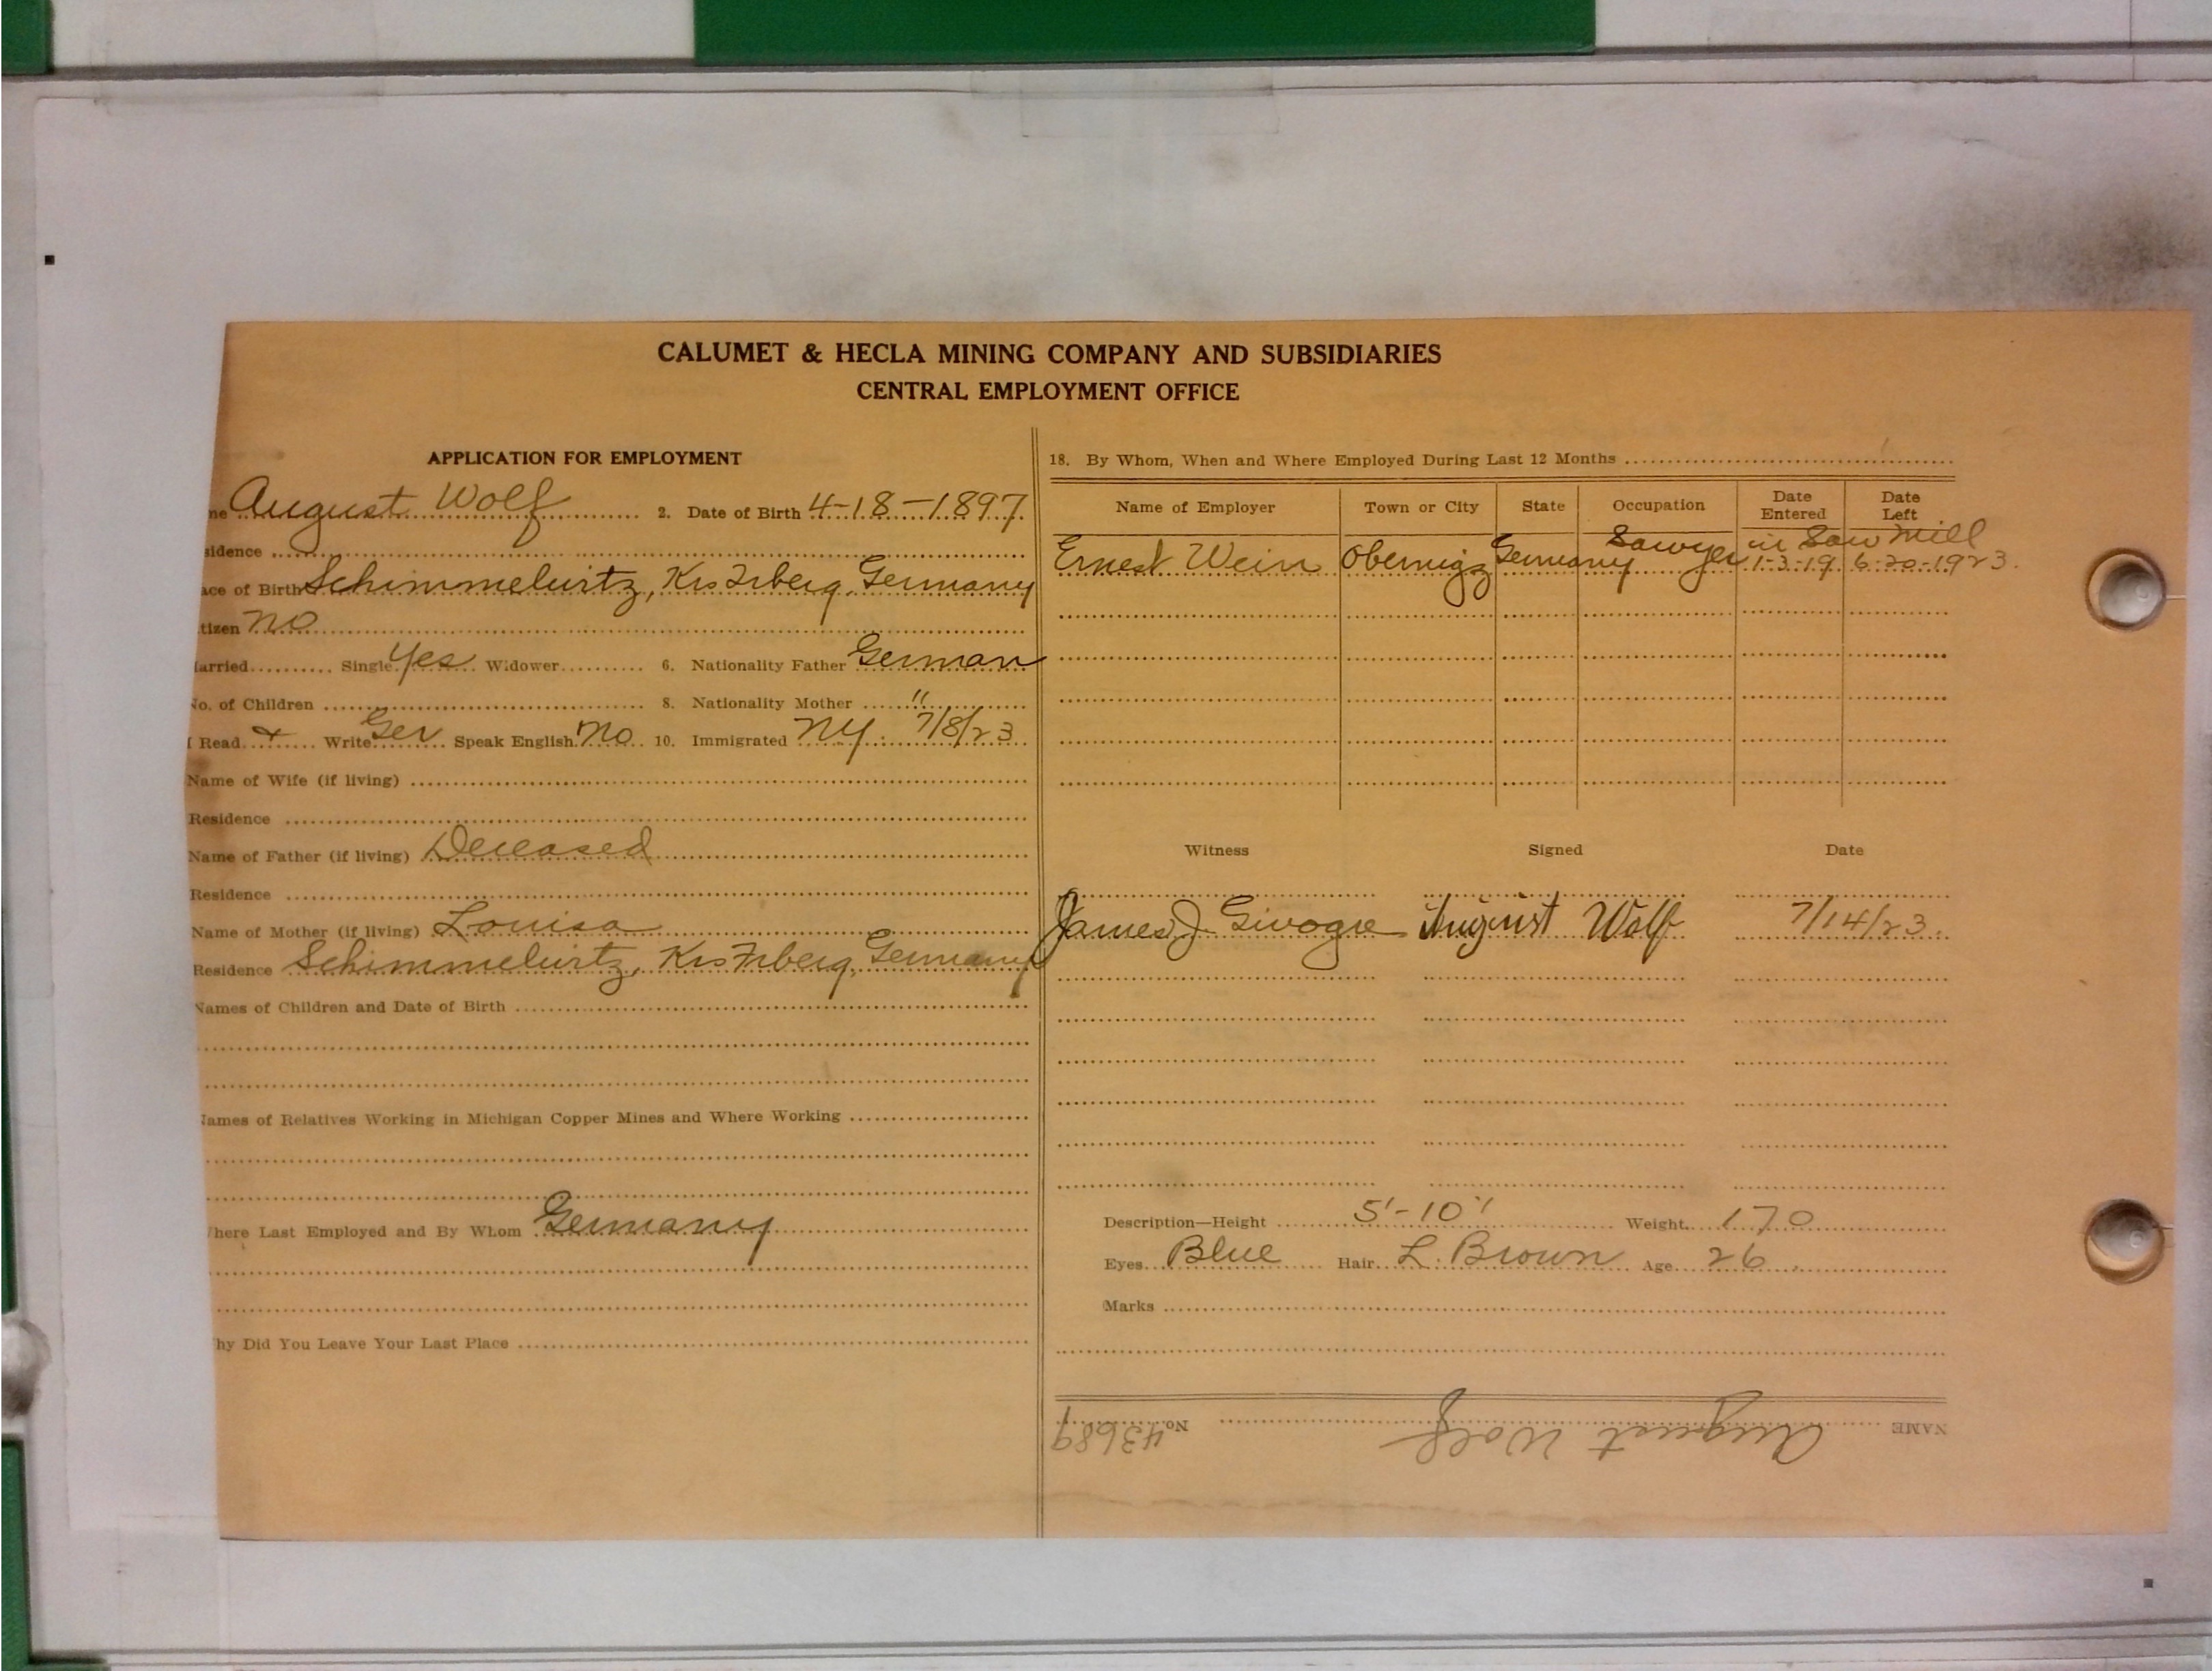 CALUMET & HECLA MINING COMPANY AND SUBSIDIARIES
CENTRAL EMPLOYMENT OFFICE
APPLICATION FOR EMPLOYMENT
ne August Wolf 2. Date of Birth 4-18-1897
sidence
ace of Birth Schimmelwitz, Krs Trberg, Germany
tizen no
arried Single Yes Widower 6. Nationality Father German
No. of Children 8. Nationality Mother "
I Read + Write Ger Speak English No 10. Immigrated NY. 7/8/23
Name of Wife (if living)
Residence
Name of Father (if living) Deceased
Residence
Name of Mother (if living) Louisa
Residence Schimmelwitz, Krs Trberg, Germany
Names of Children and Date of Birth
Names of Relatives Working in Michigan Copper Mines and Where Working
here Last Employed and By Whom Germany
hy Did You Leave Your Last Place
18. By Whom, When and Where Employed During Last 12 Months
Name of Employer Town or City State Occupation Date Entered Date Left
Sawyer in Saw Mill
Ernest Wein Obernigz Germany yer 1-3-19 6-20-1923.
Witness Signed Date
James J August Wolf 7/14/23.
Description—Height 5'-10" Weight 170
Eyes Blue Hair L. Brown Age 26.
Marks
NAME August Wolf No. 43689